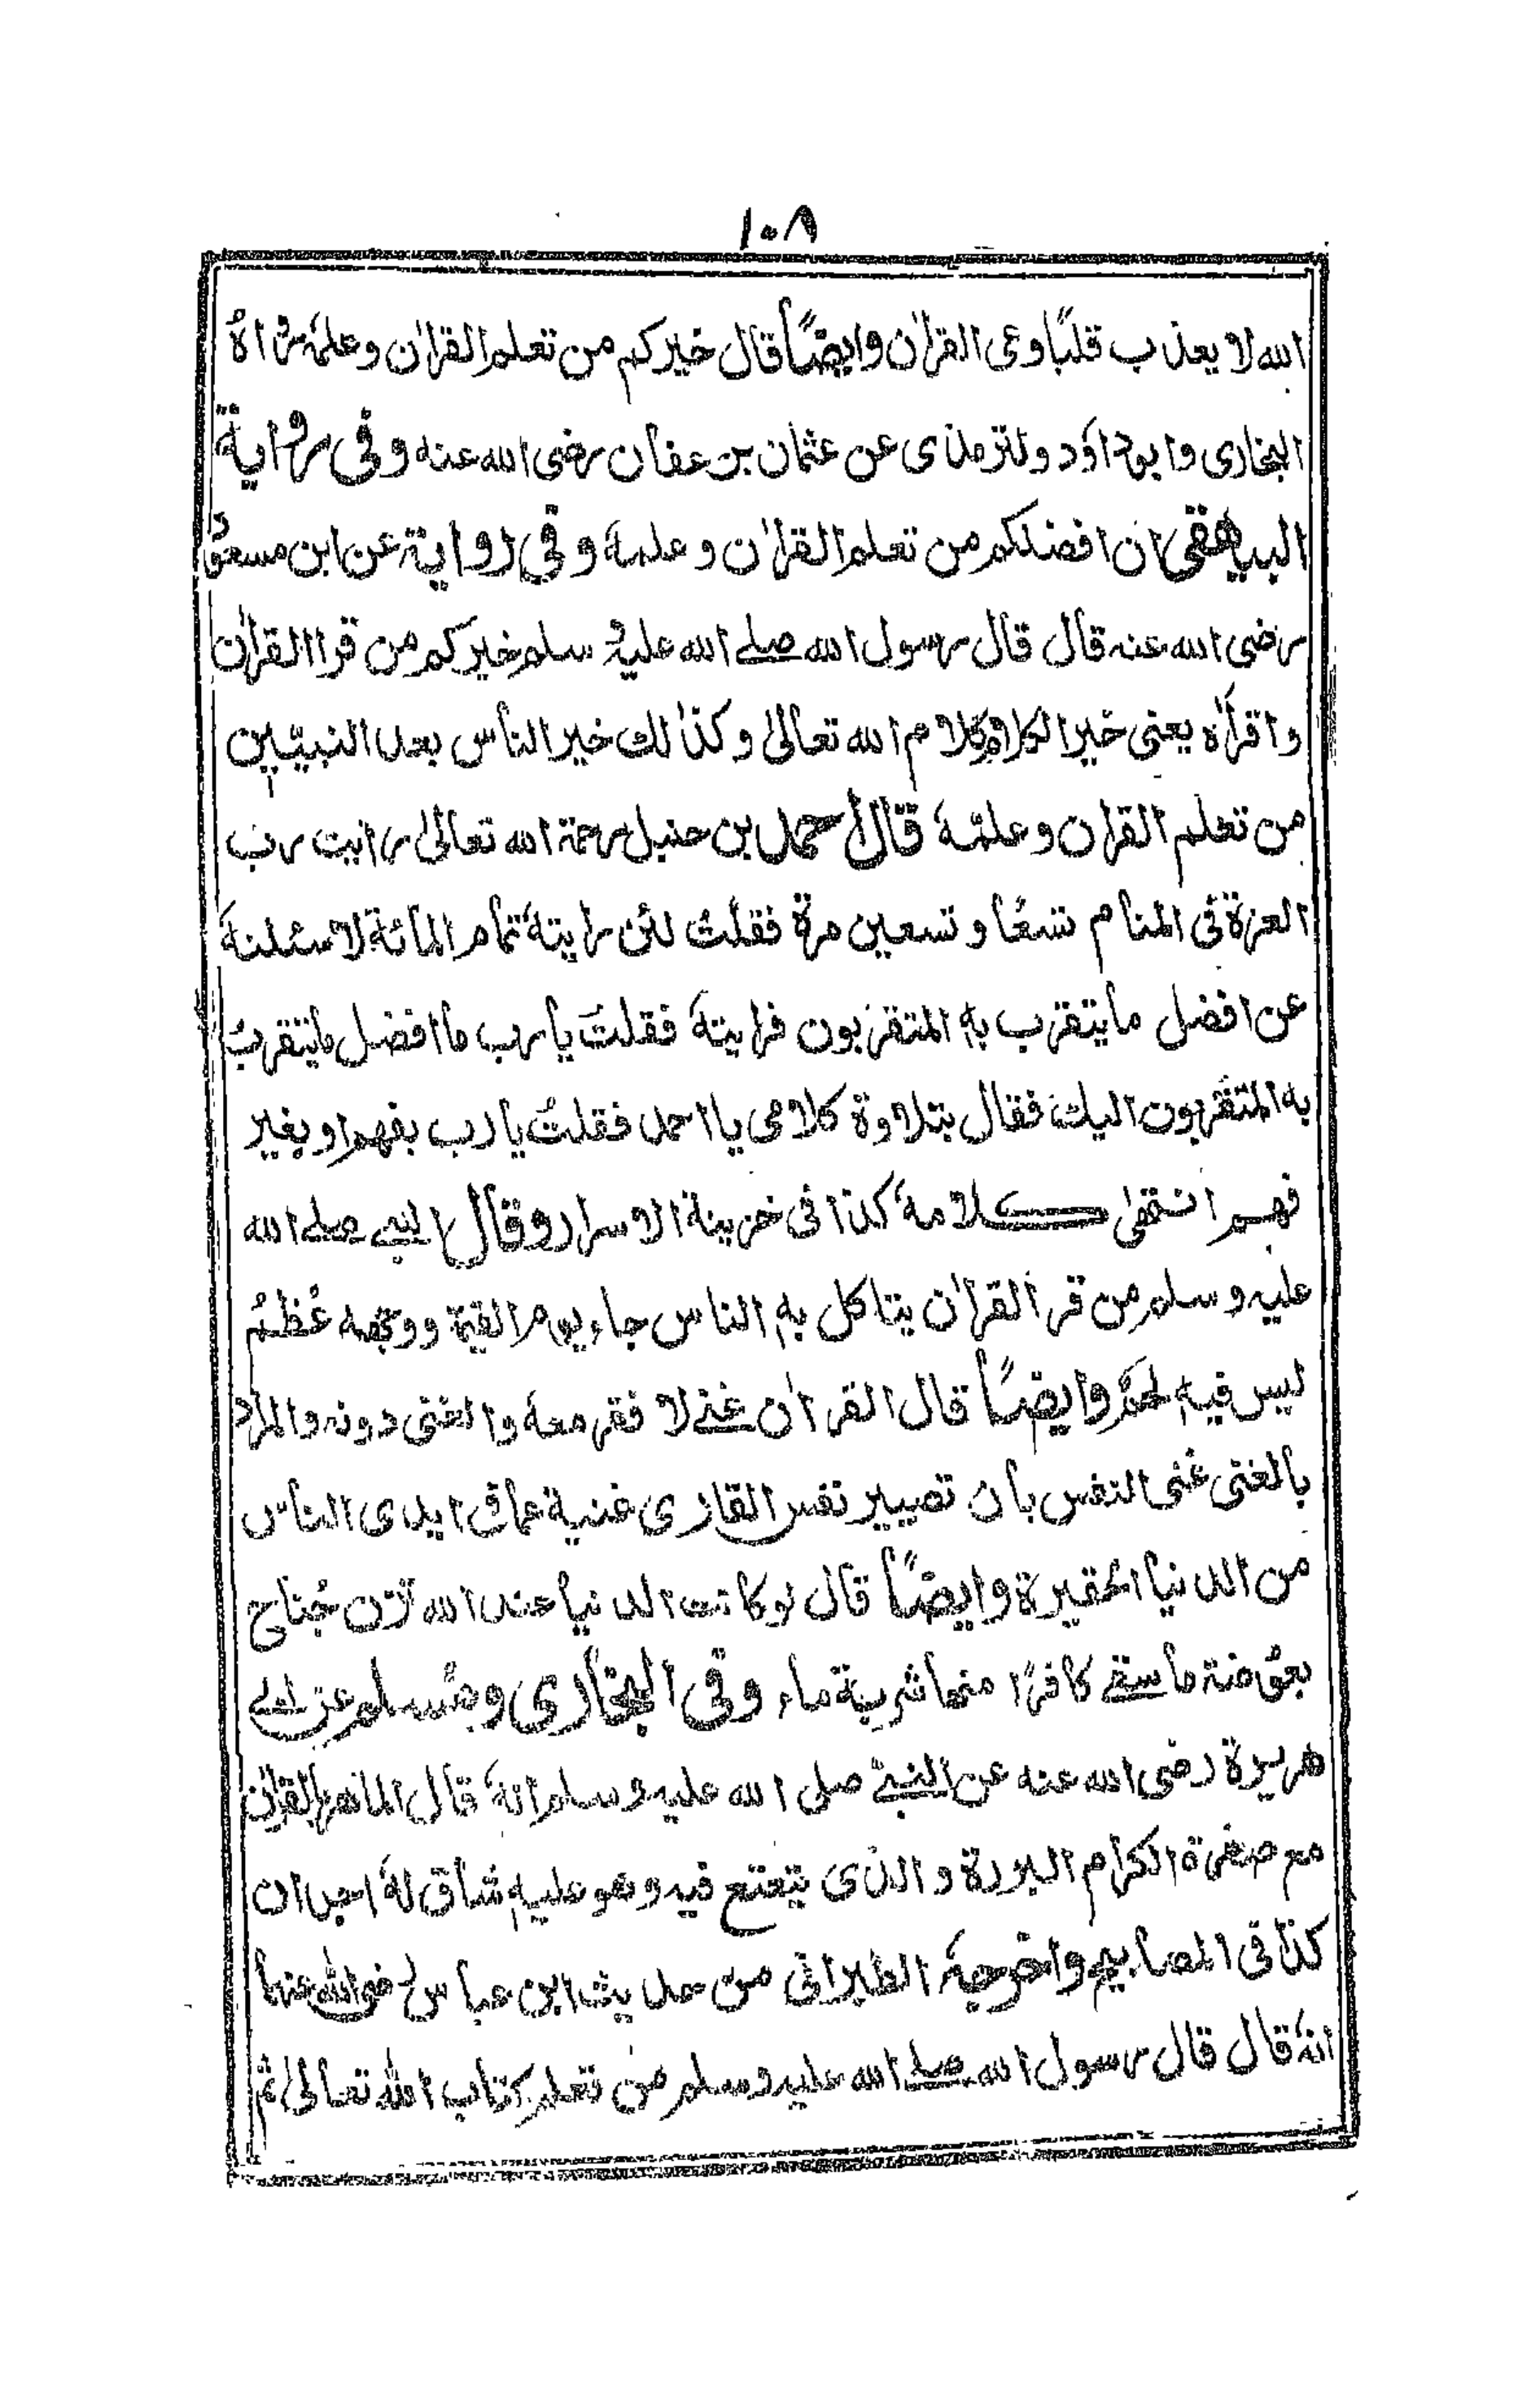 ١٠٨
الله لا يعذب قلبًا وعى القراٰن وايضًا قال خيركم من تعلم القراٰن وعلمهٗ رواهُ
البخارى وابوداؤد ولترمذى عن عثمان بن عفان رضى الله عنه وفى رواية
البيهقى ان افضلكم من تعلم القراٰن وعلمهٗ وفى رواية عن ابن مسعودٌ
رضى الله عنه قال قال رسول الله صلے الله عليه وسلم خيركم من قرا القراٰن
واقرأه يعنى خير الكلام كلام الله تعالىٰ وكذٰالك خير الناس بعد النبيّين
من تعلم القراٰن وعلّمهٗ قال احمد بن حنبل رحمة الله تعالىٰ رايت رب
العزة فى المنام تسعًا و تسعين مرة فقلتُ لئن رايتهٗ تمام المأئة لاسئلنهٗ
عن افضل مايتقرب بهٖ المتقربون فرايتهٗ فقلتُ يارب ما افضل مايتقربُ
به المتقربون اليك فقال بتلاوة كلامى يا احمد فقلتُ يارب بفهم او بغير
فهم انتهىٰ كلامهٗ كذا فى خزينة الاسرار وقال النبے صلے الله
عليه وسلم من قرأ القراٰن يتاكل بهٖ الناس جاء يوم القيٰمة ووجهه عُظمٌ
ليس فيهٖ لحمٌ وايضًا قال القراٰن غنے لا فقر معهٗ والغنى دونه والمراد
بالغنى غنى النفس بان تصيير نفس القارى غنية عما فى ايدى الناس
من الدنيا الحقيرة وايضًا قال لو كانت الدنيا عند الله تزن جُناح
بعوضة ما سقے كافرًا منها شربة ماء وفى البخارى ومُسلم عن ابے
هريرة رضى الله عنه عن النبے صلى الله عليه وسلم انهٗ قال الماهر بالقراٰن
مع صفرة الكرام البررة والذى يتعتع فيه وهو عليهٖ شاق لهٗ اجران
كذا فى المصابيح واخرجهٗ الطبرانى من حديث ابن عباس رضوالله عنهما
انهٗ قال قال رسول الله صلے الله عليه وسلم من تعلم كتاب الله تعالىٰ ثم